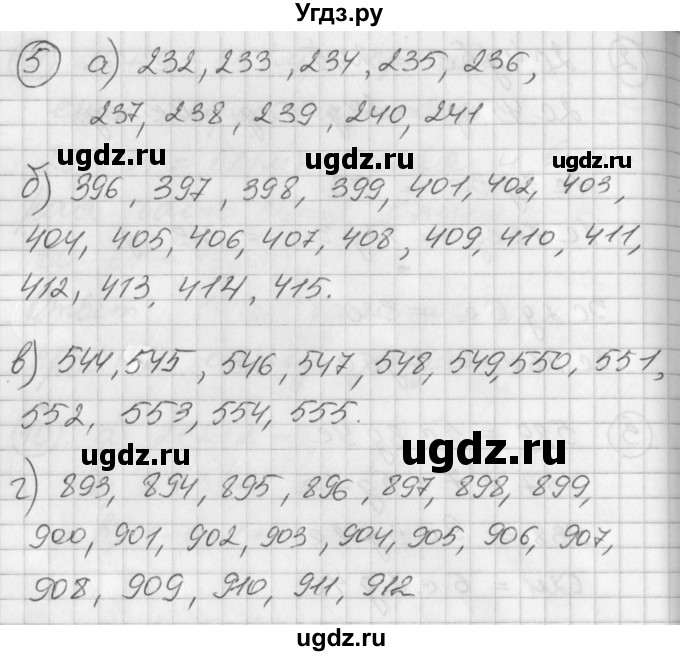 Угдз.ру
5 а) 232, 233, 234, 235, 236,
237, 238, 239, 240, 241
ugdz.ru ugdz.ru ugdz.ru
б) 396, 397, 398, 399, 401, 402, 403,
404, 405, 406, 407, 408, 409, 410, 411,
412, 413, 414, 415.
в) 544, 545, 546, 547, 548, 549, 550, 551,
552, 553, 554, 555.
ugdz.ru ugdz.ru
г) 893, 894, 895, 896, 897, 898, 899,
900, 901, 902, 903, 904, 905, 906, 907,
908, 909, 910, 911, 912
ugdz.ru